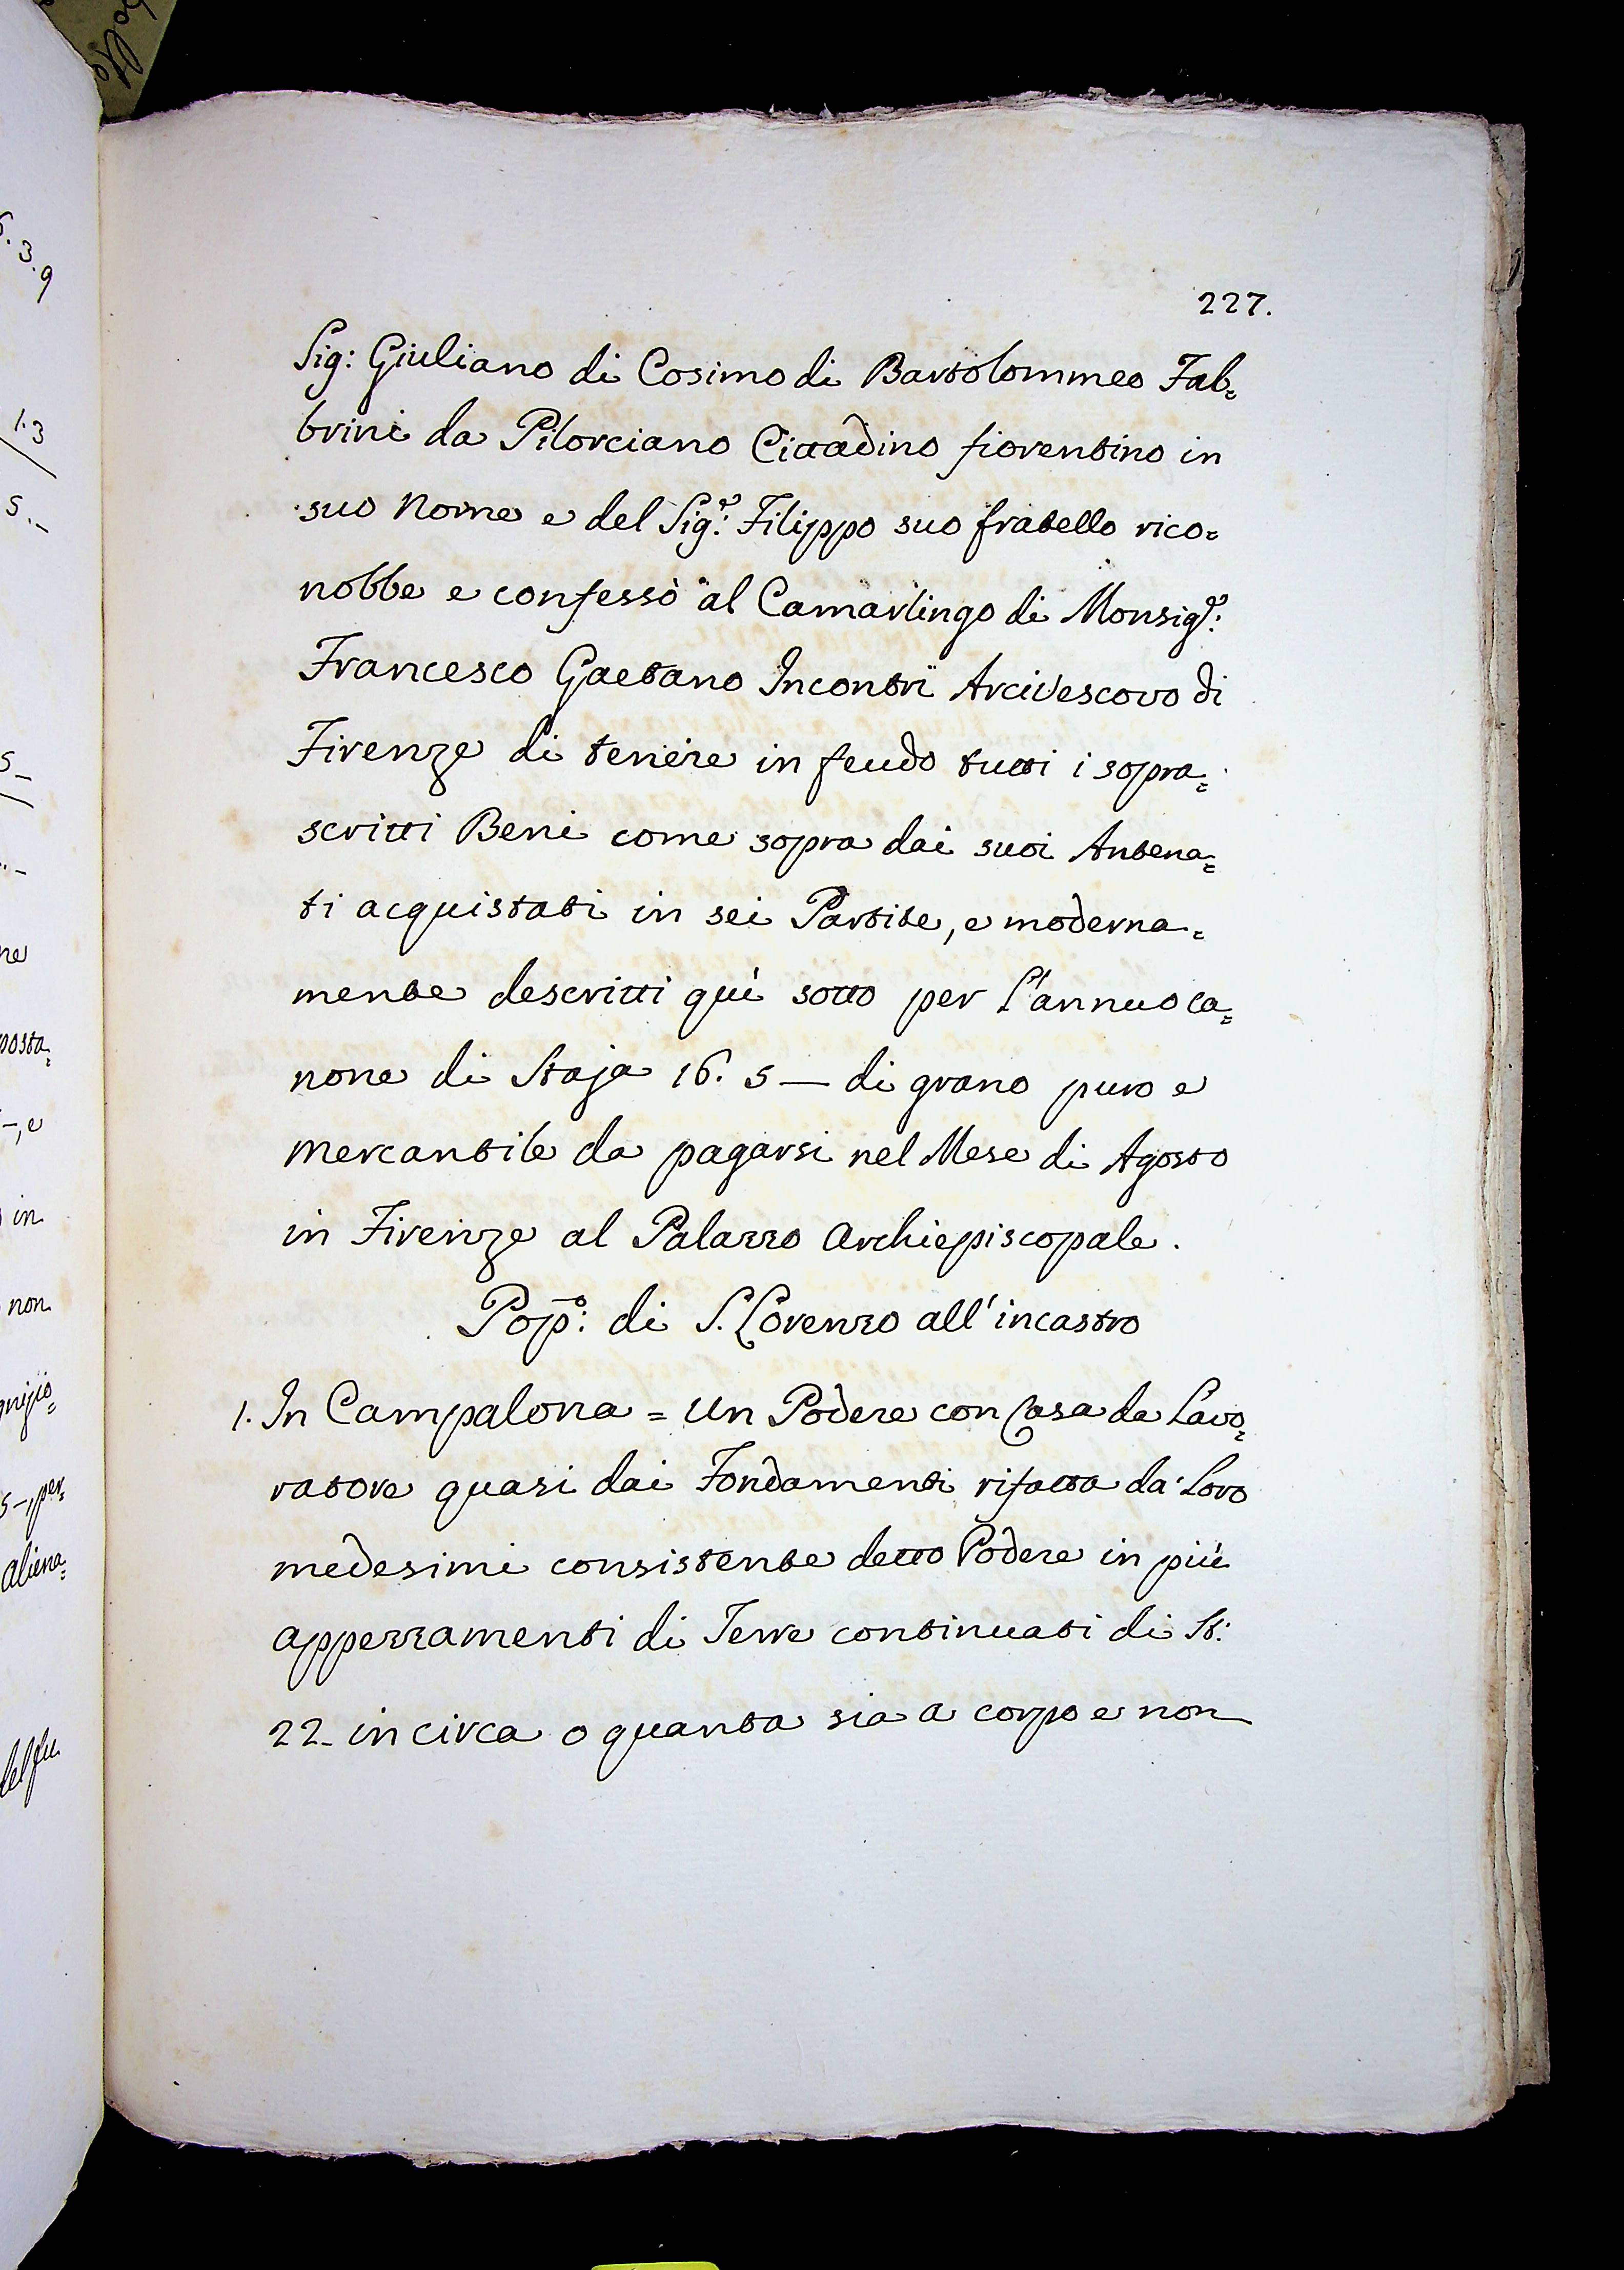 227.
Sig: Giuliano di Cosimo di Bartolommeo Fab=
brini da Pilorciano Cittadino fiorentino in
suo Nome e del Sig.r: Filippo suo fratello rico=
nobbe e confessò al Camarlingo di Monsig.r:
Francesco Gaetano Incontri Arcivescovo di
Firenze di tenere in feudo tutti i sopra=
scritti Beni come sopra dai suoi Antena=
ti acquistati in sei Partite, e moderna=
mente descritti quì sotto per l'annuo ca=
none di Staja 16. 5 — di grano puro e
mercantile da pagarsi nel Mese di Agosto
in Firenze al Palazzo Archiepiscopale.
Pop.o: di S. Lorenzo all'incastro
1. In Campalona = Un Podere con Casa da Lavo=
ratore quasi dai Fondamenti rifatta da Loro
medesimi consistente detto Podere in più
appezzamenti di Terre continuati di St:
22_ in circa o quanta sia a corpo e non